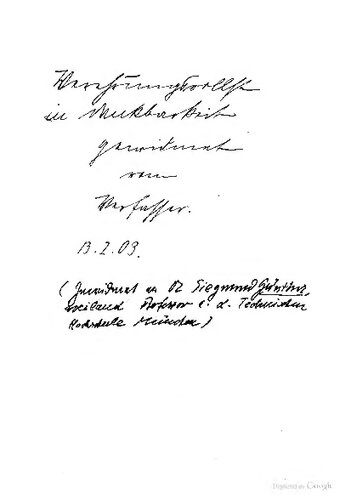 Verehrungsvollst
in Dankbarkeit
gewidmet
vom
Verfasser.
13.I.03.
(Gewidmet an Dr Siegmund Günther,
weiland Professor a. d. Technischen
Hochschule München)
Digitized by Google